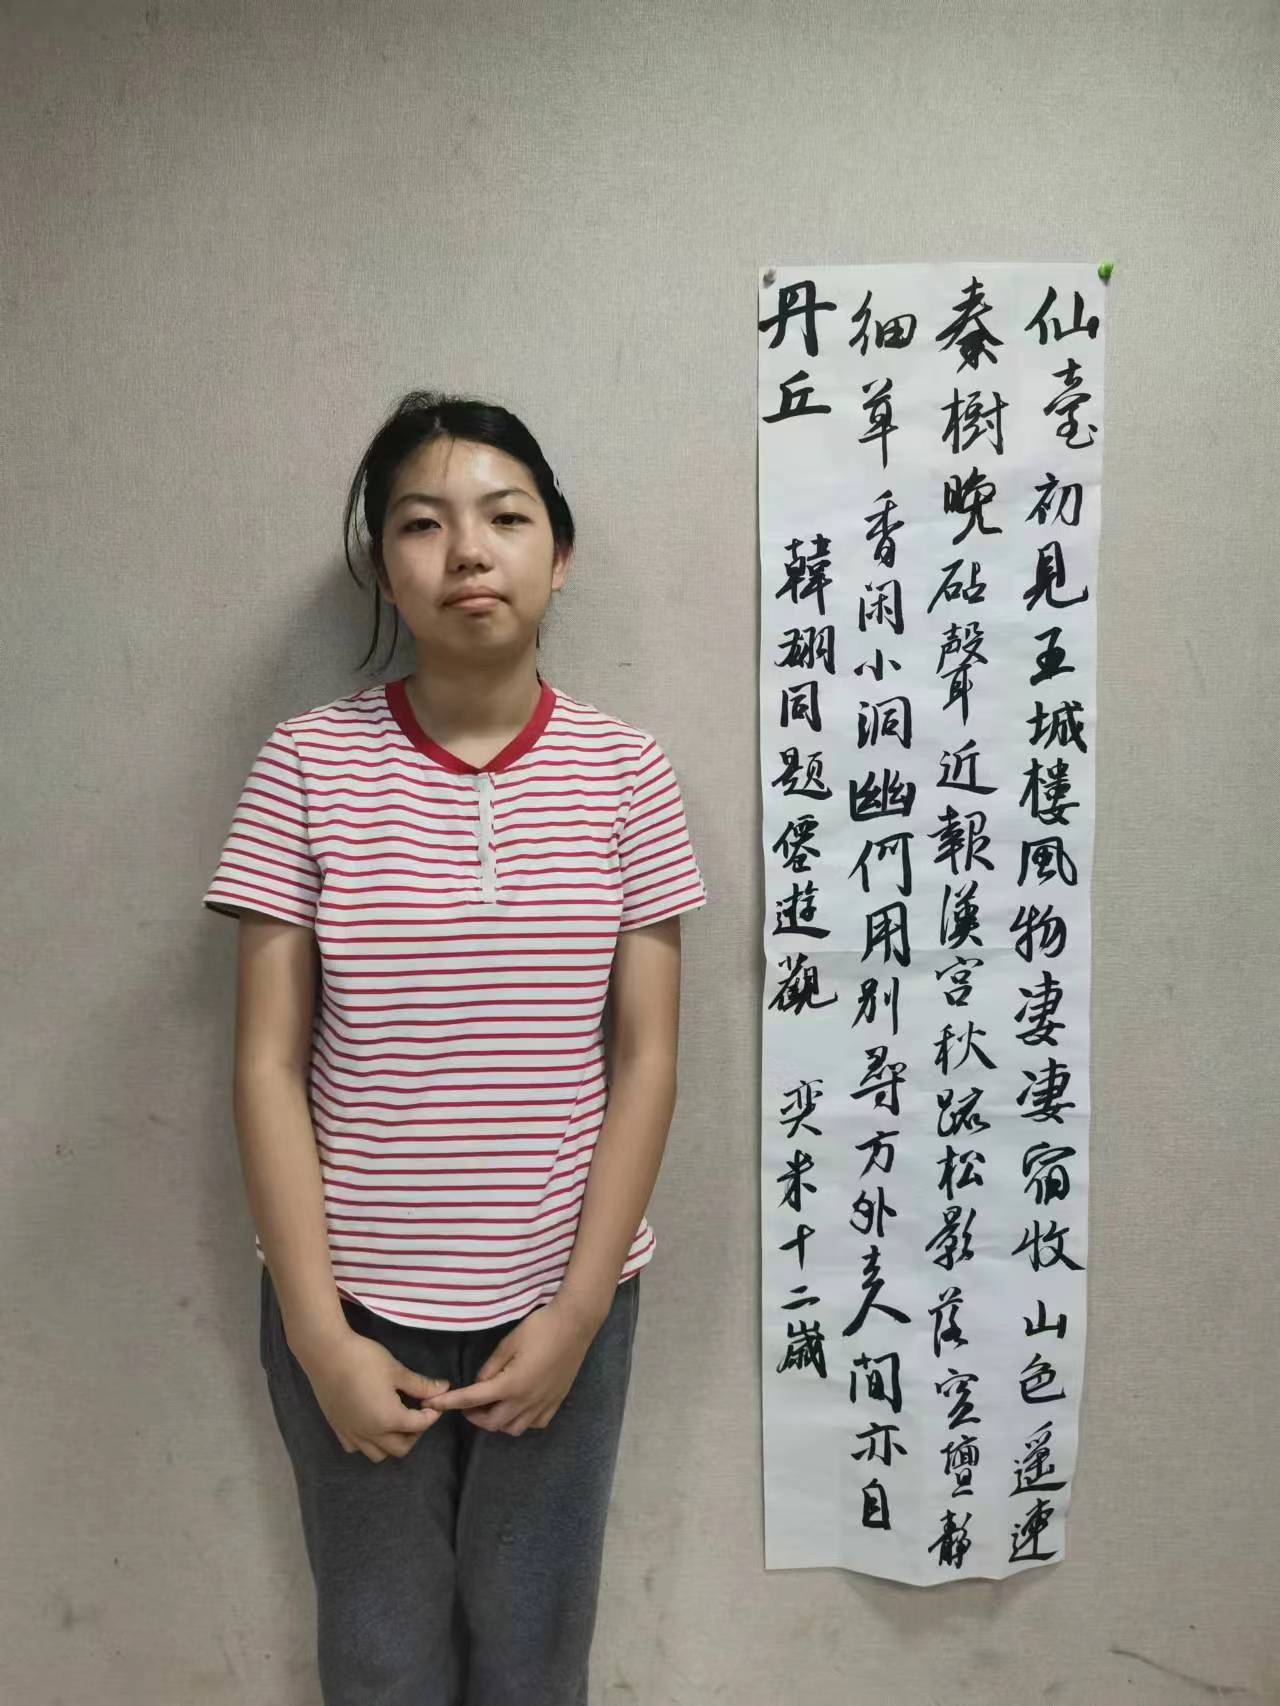 仙臺初見五城樓風物凄凄宿收山色遥連
秦樹晚砧聲近報漢宮秋疏松影落空壇靜
細草香闲小洞幽何用別尋方外去人間亦自
丹丘
韓翃同題僊遊觀
奕米十二歲